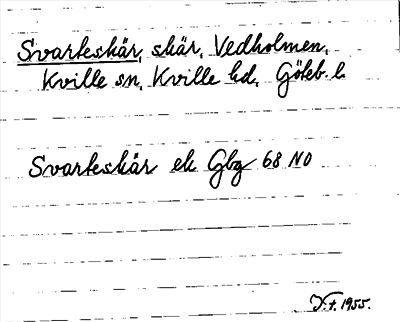 Svarteskär, skär, Vedholmen,
Kville sn, Kville hd, Göteb. l.
Svarteskär ek Gbg 68 NO
1955.